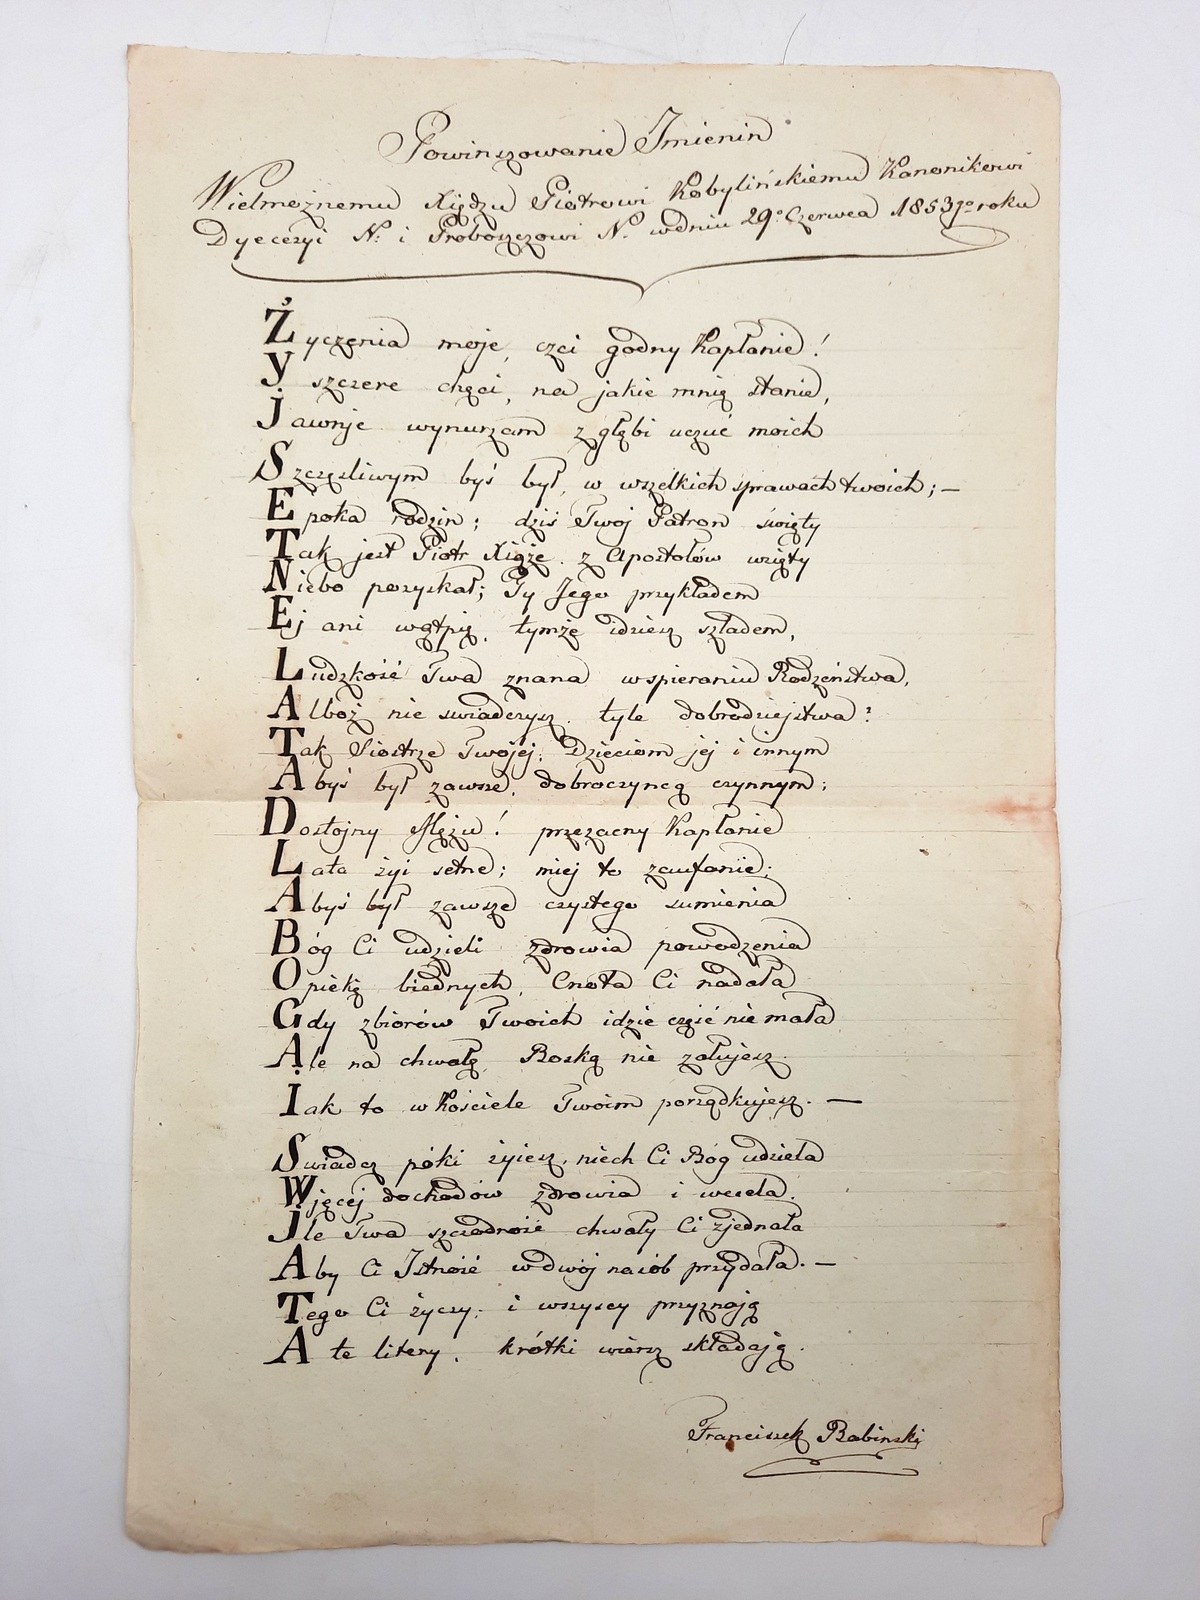 Powinszowanie Imienin
Wielmożnemu Xiędzu Piotrowi Kobylińskiemu Kanonikowi
Dyecezyi N. i Proboszczowi N. w dniu 29o Czerwca 1853go roku
Życzenia moje, czci godny Kapłanie!
Y szczere chęci, na jakie mnię stanie,
jawnje wynurzam z głębi uczuć moich
Szczęsliwym byś był, w wszelkich sprawach twoich; —
Epoka rodzin; dziś Twój Patron święty
Tak jest Piotr Xiąże z Apostołów wzięty
Niebo pozyskał; Ty Jego przykładem
Ej ani wątpię, tymże idziesz szladem,
Ludzkość Twa znana wspieraniu Rodzeństwa,
Alboż nie swiadczysz tyle dobrodziejstwa?
Tak Siostrze Twojej; Dzieciom jej i innym
Abyś był zawsze, dobroczyncą czynnym;
Dostojny Mężu! przezacny Kapłanie
Lata żyi setne; miej to zaufanie;
Abyś był zawsze czystego sumienia
Bóg Ci udzieli zdrowia powodzenia
Opiekę biednych, Cnota Ci nadała
Gdy zbiorów Twoich idzie część nie mała
Ale na chwałę Boską nie żałujesz.
Iak to w Kościele Twoim porządkujesz. —
Swiadcz póki żyiesz, niech Ci Bóg udziela
Wjęcej dochodów zdrowia i wesela.
jle Twa szczodrość chwały Ci zjednała
Aby Ci Istność w dwój nasób przydała. —
Tego Ci życzy; i wszyscy przyznają
A te litery, krótki wiersz składają.
Franciszek Babinski